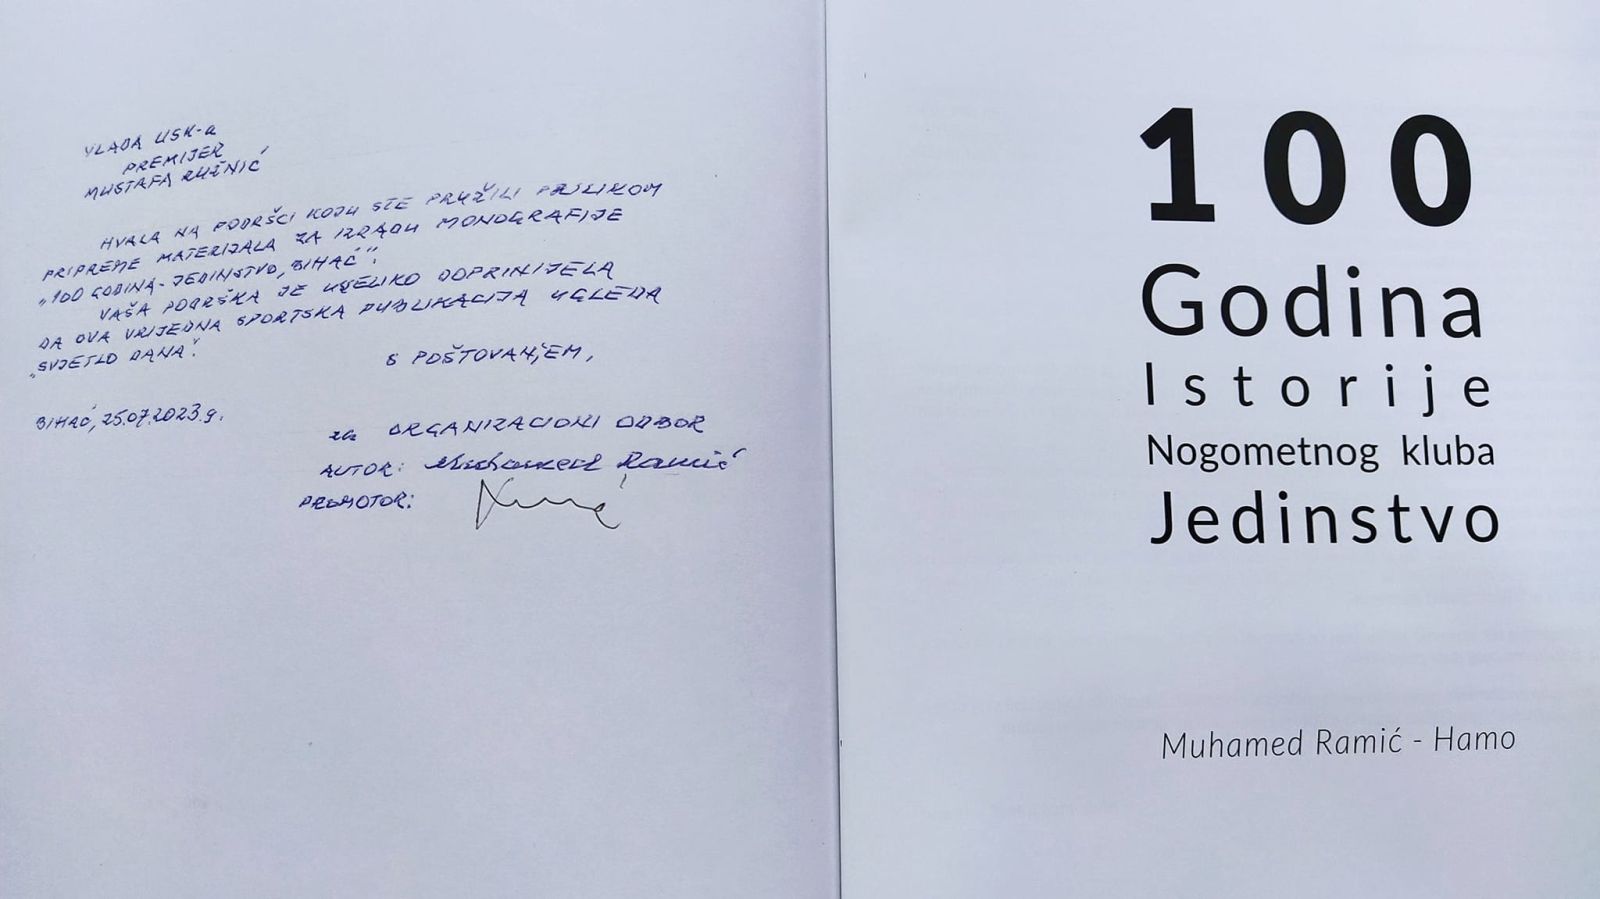 VLADA USK-a
PREMIJER
MUSTAFA RUŽNIĆ
HVALA NA PODRŠCI KOJU STE PRUŽILI PRILIKOM
PRIPREME MATERIJALA ZA IZRADU MONOGRAFIJE
„100 GODINA - JEDINSTVO, BIHAĆ".
VAŠA PODRŠKA JE UVELIKO DOPRINIJELA
DA OVA VRIJEDNA SPORTSKA PUBLIKACIJA UGLEDA
„SVJETLO DANA".
S POŠTOVANJEM,
BIHAĆ, 25.07.2023.g.
za ORGANIZACIONI ODBOR
AUTOR: Muhamed Ramić
PROMOTOR:
100
Godina
Istorije
Nogometnog kluba
Jedinstvo
Muhamed Ramić - Hamo